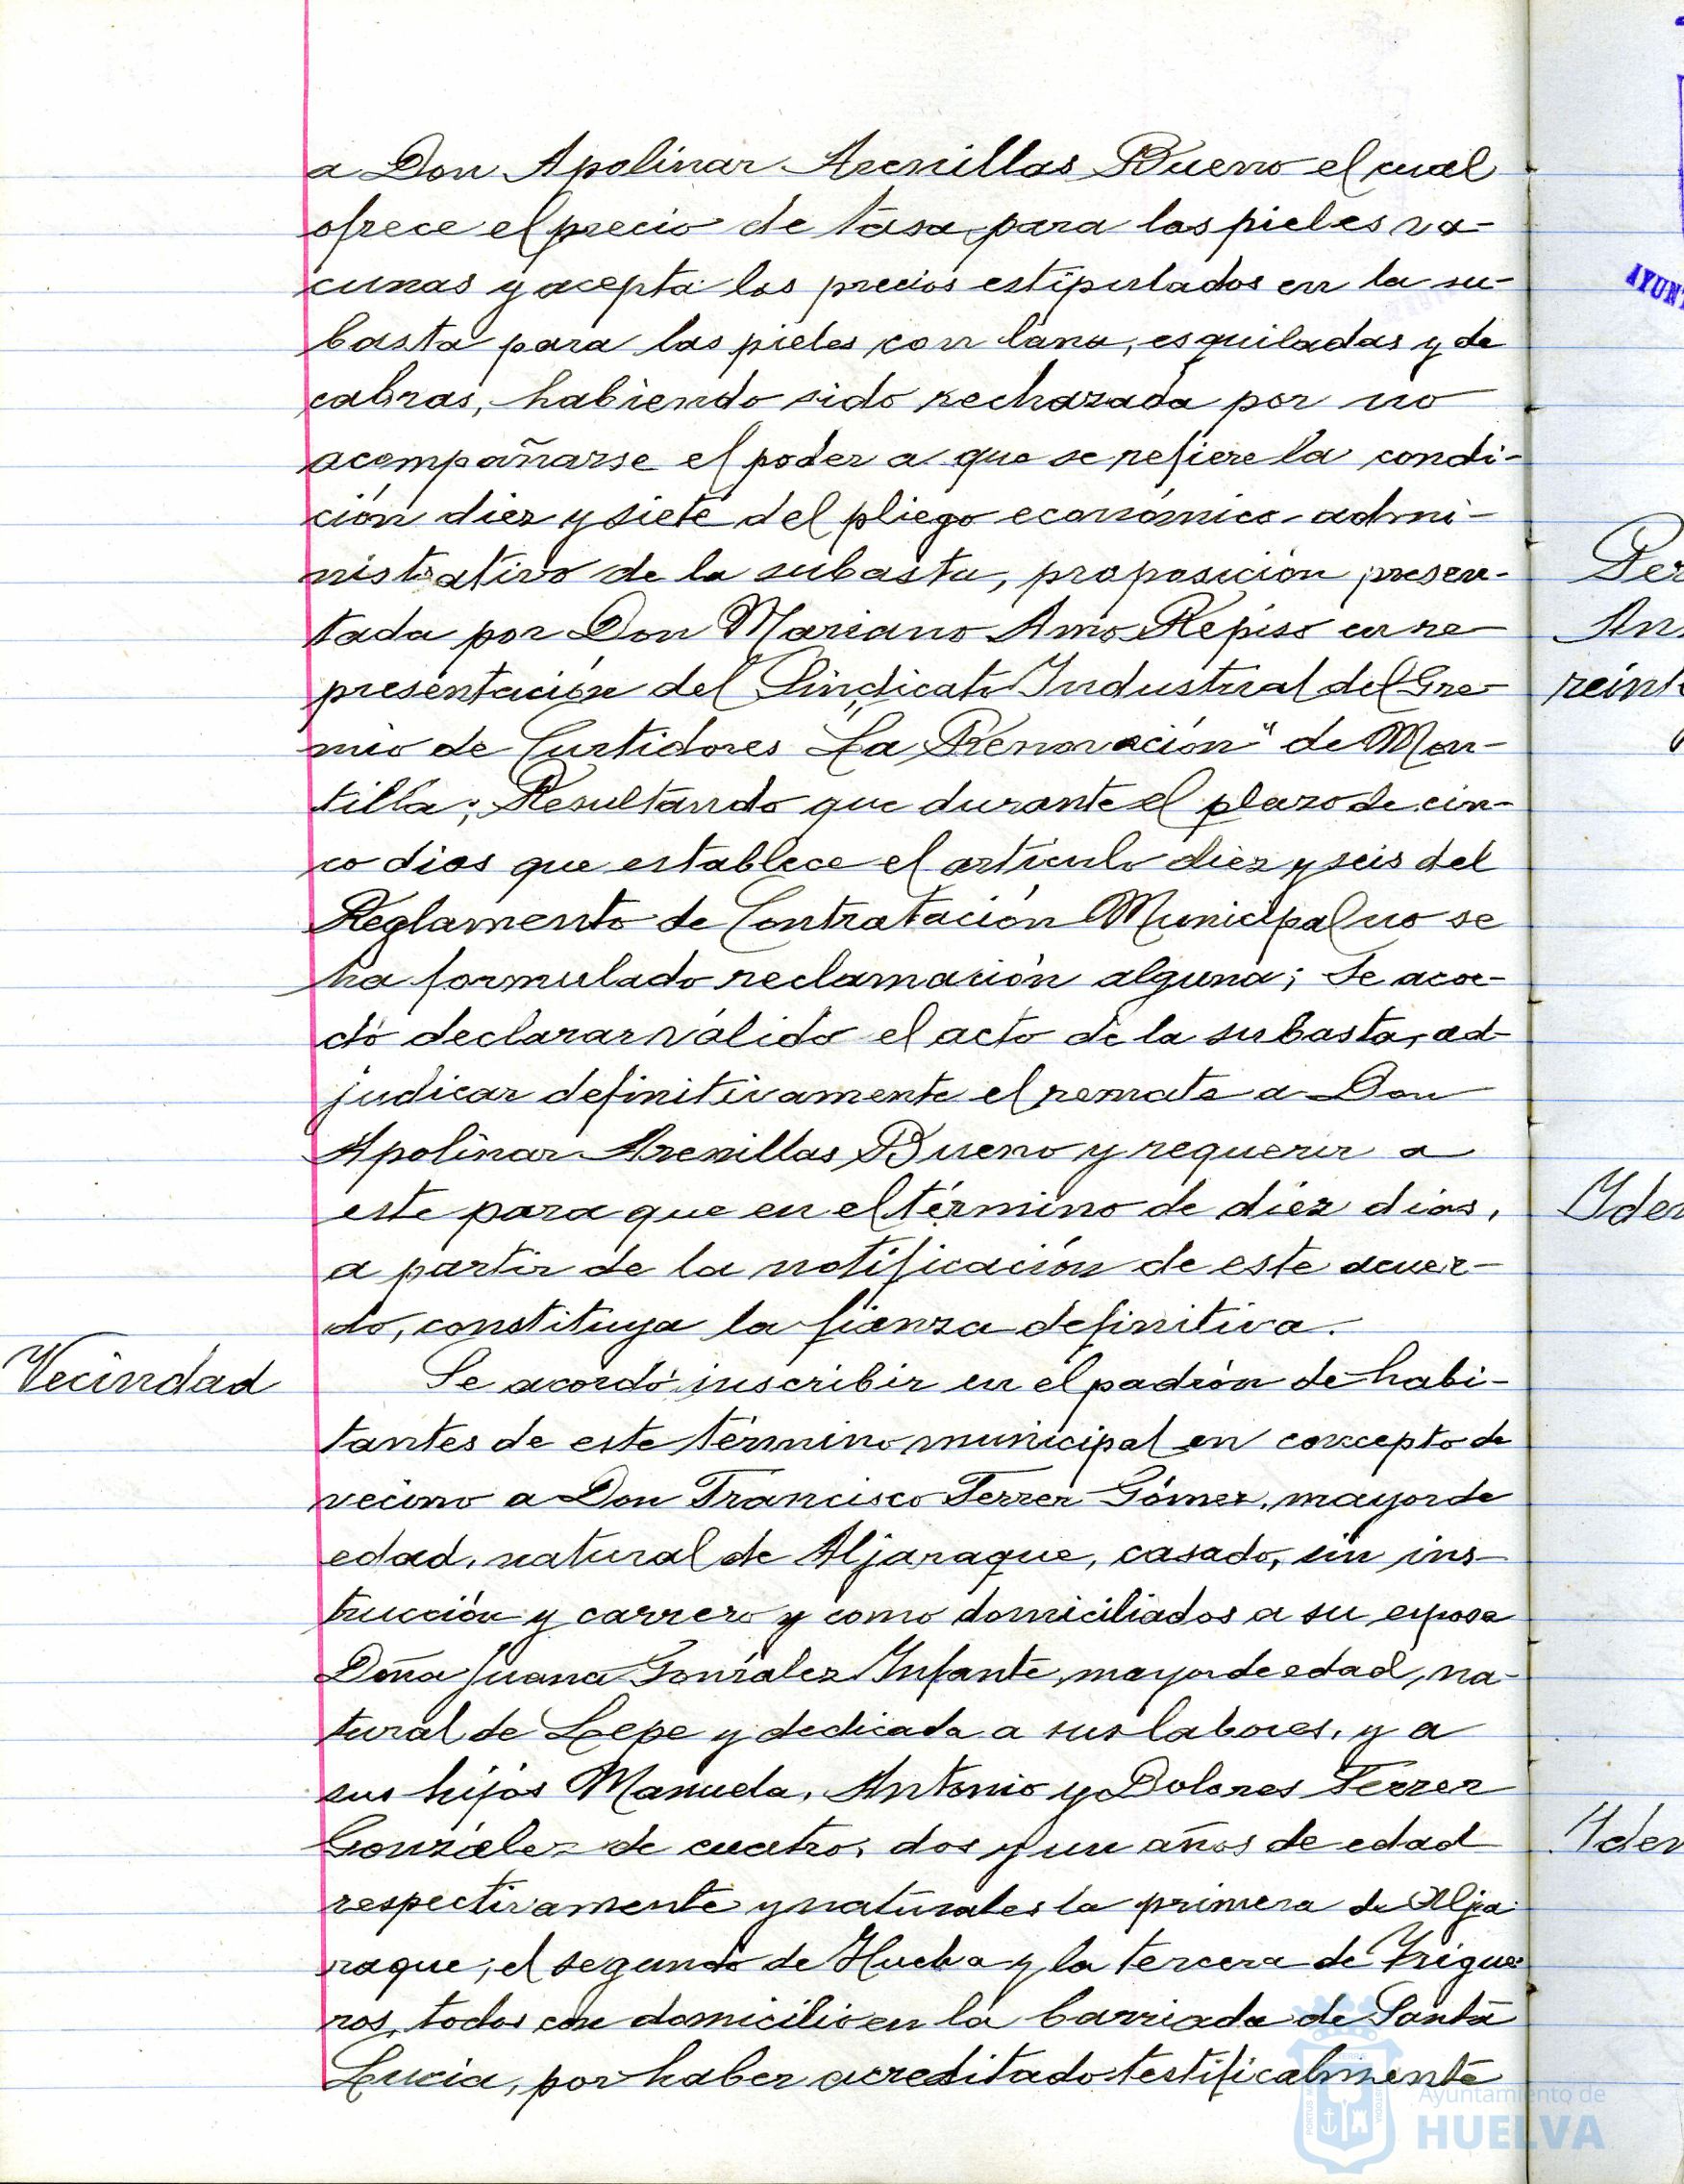 a Don Apolinar Arenillas Bueno el cual
ofrece el precio de tasa para las pieles va-
cunas y acepta los precios estipulados en la su-
basta para las pieles con lana, esquiladas y de
cabras, habiendo sido rechazada por no
acompañarse el poder a que se refiere la condi-
ción diez y siete del pliego económico-admi-
nistrativo de la subasta, proposición presen-
tada por Don Mariano Amo Repiso en re-
presentación del Sindicato Industrial del Gre-
mio de Curtidores "La Renovación" de Mon-
tilla; Resultando que durante el plazo de cin-
co dias que establece el artículo diez y seis del
Reglamento de Contratación Municipal no se
ha formulado reclamación alguna; Se acor-
dó declarar válido el acto de la subasta, ad-
judicar definitivamente el remate a Don
Apolinar Arenillas Bueno y requerir a
este para que en el término de diez dias,
a partir de la notificación de este acuer-
do, constituya la fianza definitiva.
Vecindad
Se acordó inscribir en el padrón de habi-
tantes de este término municipal en concepto de
vecino a Don Francisco Ferrer Gómez, mayor de
edad, natural de Aljaraque, casado, sin ins-
trucción y carrero y como domiciliados a su esposa
Doña Juana González Infante, mayor de edad, na-
tural de Lepe y dedicada a sus labores, y a
sus hijos Manuela, Antonio y Dolores Ferrer
González de cuatro, dos y un años de edad
respectivamente y naturales la primera de Alja-
raque, el segundo de Huelva y la tercera de Trigue-
ros, todos con domicilio en la barriada de Santa
Lucia, por haber acreditado testificalmente
AYUNT
Per
An
reint
Idem
Idem
Ayuntamiento de
HUELVA